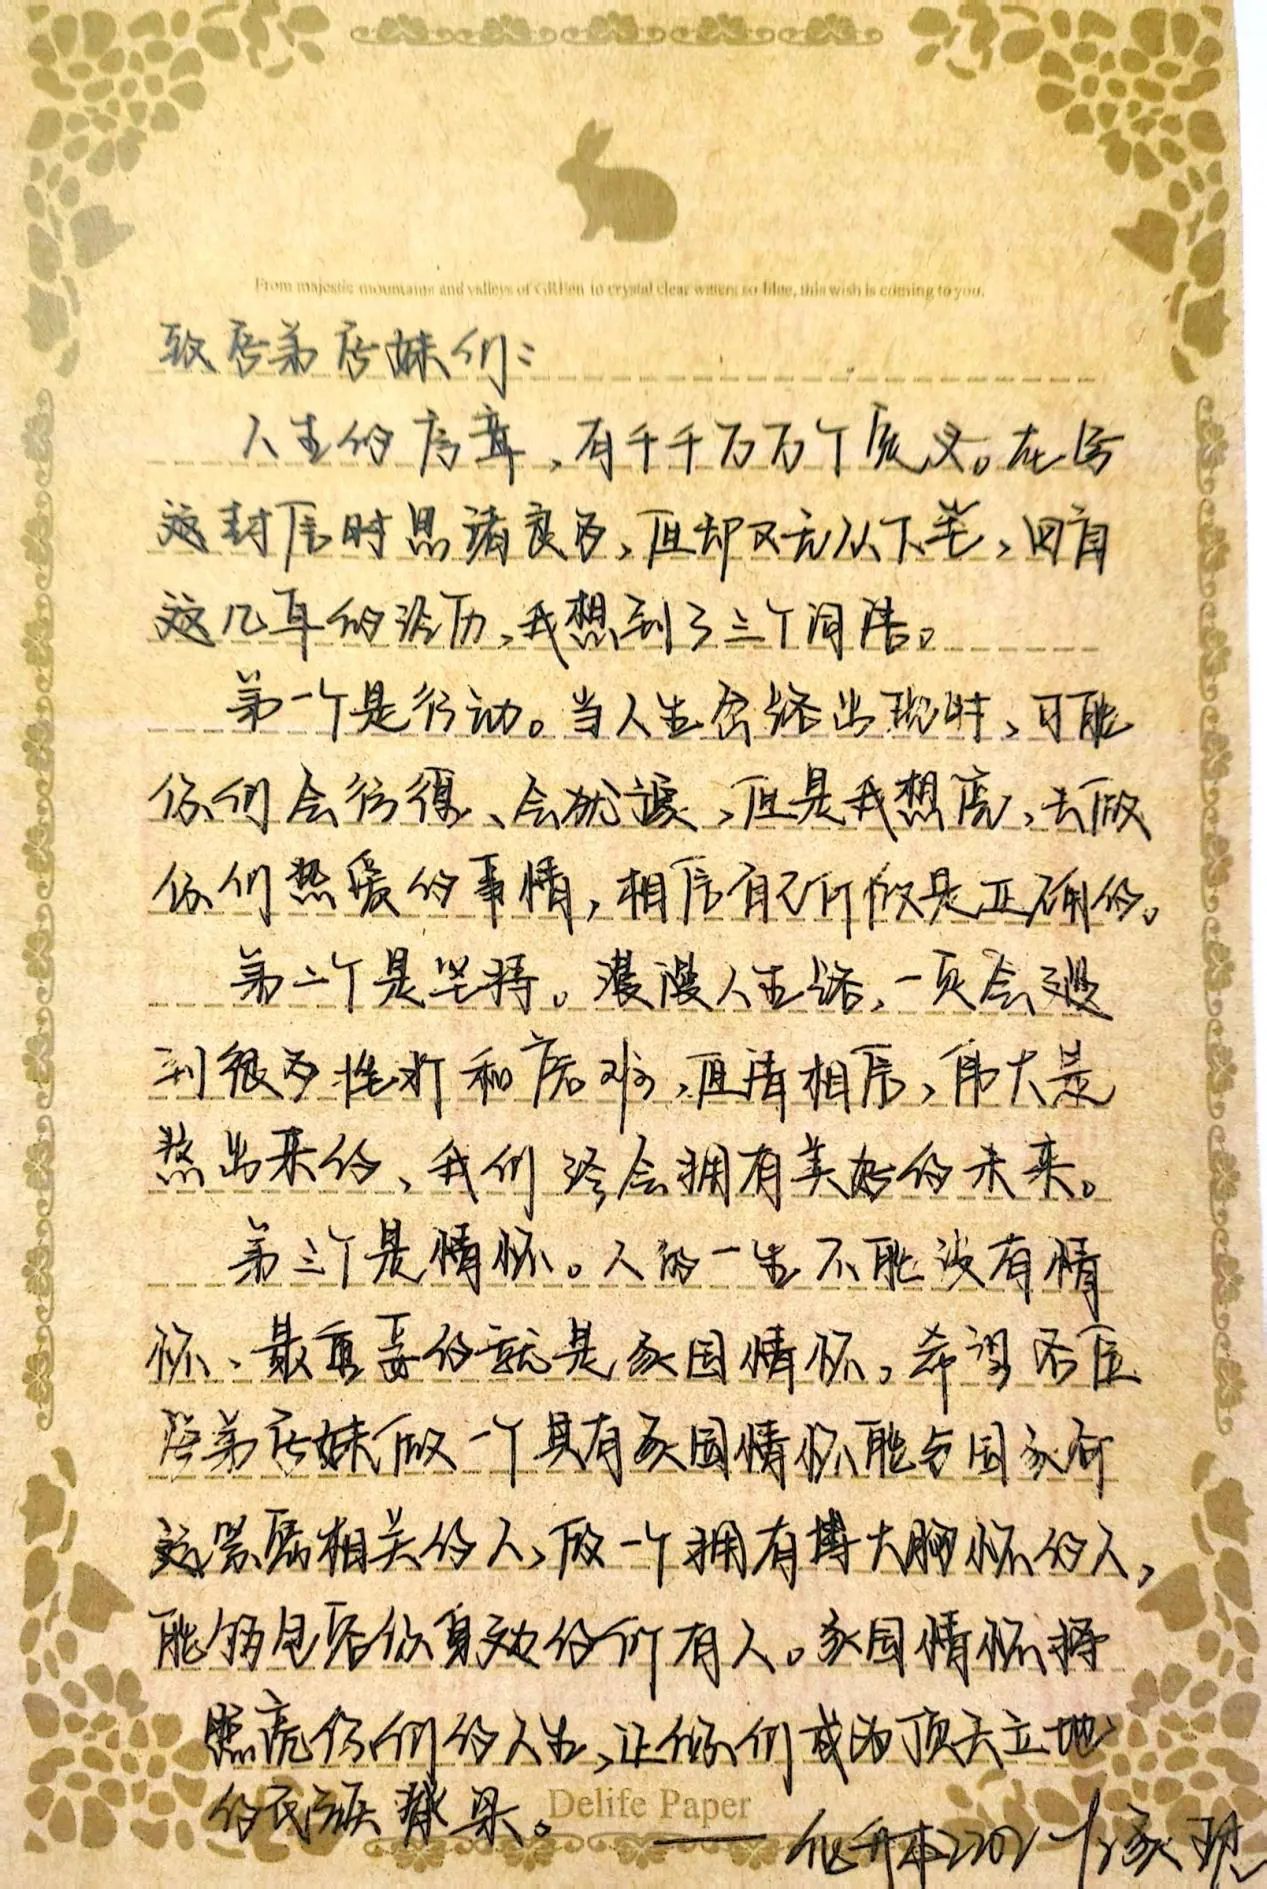 From majestic mountains and valleys of GREen to crystal clear waters so blue, this wish is coming to you.
致学弟学妹们：
人生的序章，有千千万万个定义。在写
这封信时思绪良多，但却又无从下笔，回首
这几年的经历，我想到了三个词语。
第一个是行动。当人生岔路出现时，可能
你们会彷徨、会犹豫，但是我想说，去做
你们热爱的事情，相信自己所做是正确的。
第二个是坚持。漫漫人生路，一定会遇
到很多挫折和磨难，但请相信，伟大是
熬出来的，我们终会拥有美好的未来。
第三个是情怀。人的一生不能没有情
怀、最重要的就是家国情怀。希望各位
学弟学妹做一个具有家国情怀能与国家命
运紧密相关的人，做一个拥有博大胸怀的人，
能够包容你身边的所有人。家国情怀将
照亮你们的人生，让你们成为顶天立地
的民族脊梁。
Delife Paper
—— 化升本2202